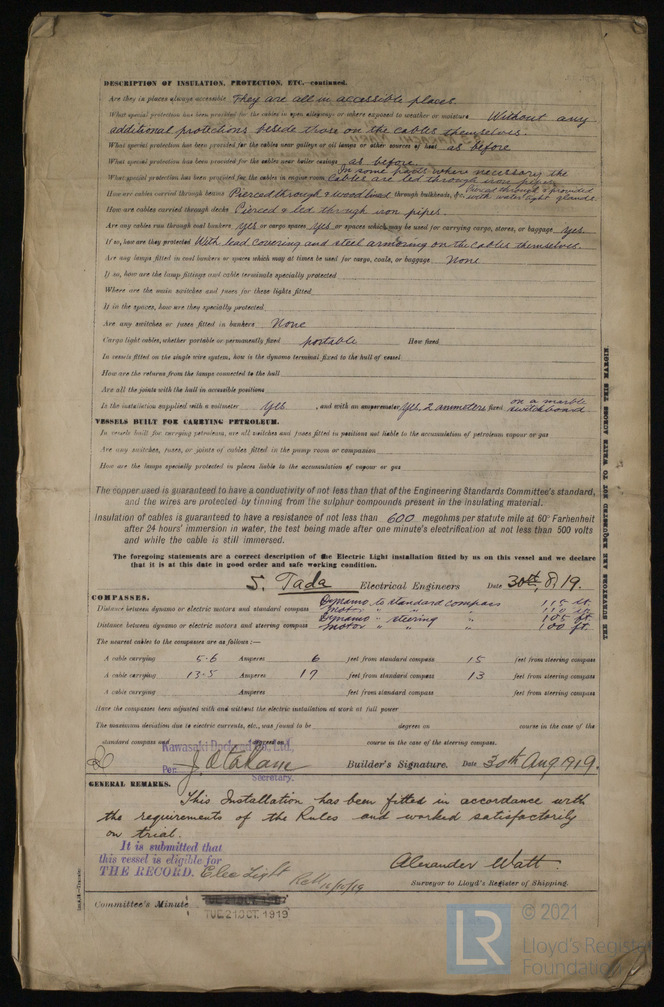 DESCRIPTION OF INSULATION, PROTECTION, ETC.—continued.
Are they in places always accessible They are all in accessible places.
What special protection has been provided for the cables in open alleyways or where exposed to weather or moisture Without any
additional protections beside those on the cables themselves.
What special protection has been provided for the cables near galleys or oil lamps or other sources of heat as before
What special protection has been provided for the cables near boiler casings as before.
In some parts where necessary the
What special protection has been provided for the cables in engine room cables are led through iron pipes.
How are cables carried through beams Pierced through & wood lined through bulkheads, &c. Pierced through & provided
with water tight glands.
How are cables carried through decks Pierced & led through iron pipes.
Are any cables run through coal bunkers yes or cargo spaces yes or spaces which may be used for carrying cargo, stores, or baggage yes
If so, how are they protected With lead covering and steel armoring on the cables themselves.
Are any lamps fitted in coal bunkers or spaces which may at times be used for cargo, coals, or baggage None
If so, how are the lamp fittings and cable terminals specially protected
Where are the main switches and fuses for these lights fitted
If in the spaces, how are they specially protected
Are any switches or fuses fitted in bunkers None
Cargo light cables, whether portable or permanently fixed portable How fixed
In vessels fitted on the single wire system, how is the dynamo terminal fixed to the hull of vessel
How are the returns from the lamps connected to the hull
Are all the joints with the hull in accessible positions
Is the installation supplied with a voltmeter Yes, and with an amperemeter Yes, 2 ammeters fixed on a marble
switchboard
VESSELS BUILT FOR CARRYING PETROLEUM.
In vessels built for carrying petroleum, are all switches and fuses fitted in positions not liable to the accumulation of petroleum vapour or gas
Are any switches, fuses, or joints of cables fitted in the pump room or companion
How are the lamps specially protected in places liable to the accumulation of vapour or gas
The copper used is guaranteed to have a conductivity of not less than that of the Engineering Standards Committee's standard,
and the wires are protected by tinning from the sulphur compounds present in the insulating material.
Insulation of cables is guaranteed to have a resistance of not less than 600 megohms per statute mile at 60° Farhenheit
after 24 hours' immersion in water, the test being made after one minute's electrification at not less than 500 volts
and while the cable is still immersed.
The foregoing statements are a correct description of the Electric Light installation fitted by us on this vessel and we declare
that it is at this date in good order and safe working condition.
S. Tada Electrical Engineers Date 30th, 8, 19.
COMPASSES.
Distance between dynamo or electric motors and standard compass Dynamo to standard compass 115 ft.
Motor " " " 110 ft.
Distance between dynamo or electric motors and steering compass Dynamo " steering " 105 ft
Motor " " " 100 ft.
The nearest cables to the compasses are as follows:—
A cable carrying 5.6 Amperes 6 feet from standard compass 15 feet from steering compass
A cable carrying 13.5 Amperes 17 feet from standard compass 13 feet from steering compass
A cable carrying Amperes feet from standard compass feet from steering compass
Have the compasses been adjusted with and without the electric installation at work at full power
The maximum deviation due to electric currents, etc., was found to be degrees on course in the case of the
standard compass and degrees on course in the case of the steering compass.
Kawasaki Dockyard Co., Ltd.,
Per Builder's Signature. Date 30th Aug 1919.
Secretary.
GENERAL REMARKS.
This Installation has been fitted in accordance with
the requirements of the Rules and worked satisfactorily
on trial.
It is submitted that
this vessel is eligible for
THE RECORD. Elec Light
Alexander Watt.
Surveyor to Lloyd's Register of Shipping.
Committee's Minute
TUE 21 OCT. 1919
THE SURVEYORS ARE REQUESTED NOT TO WRITE ACROSS THIS MARGIN
LR
© 2021
Lloyd's Register
Foundation